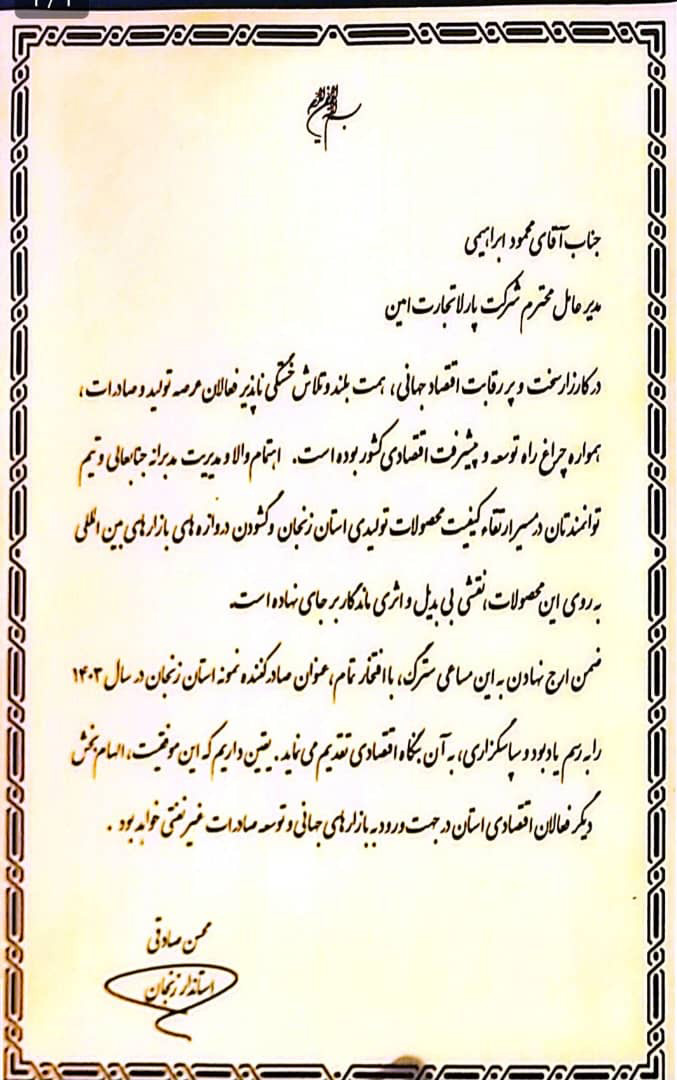 بسم الله الرحمن الرحیم
جناب آقای محمود ابراهیمی
مدیر عامل محترم شرکت پارلا تجارت امین
در کارزار سخت و پر رقابت اقتصاد جهانی، همت بلند و تلاش خستگی ناپذیر فعالان عرصه تولید و صادرات،
همواره چراغ راه توسعه و پیشرفت اقتصادی کشور بوده است. اهتمام والا و مدیریت مدبرانه جنابعالی و تیم
توانمندتان در مسیر ارتقاء کیفیت محصولات تولیدی استان زنجان و گشودن دروازه های بازارهای بین المللی
به روی این محصولات، نقشی بی بدیل و اثری ماندگار بر جای نهاده است.
ضمن ارج نهادن به این مساعی سترگ، با افتخار تمام، عنوان صادرکننده نمونه استان زنجان در سال ۱۴۰۳
را به رسم یادبود و سپاسگزاری، به آن بنگاه اقتصادی تقدیم می نماید. یقین داریم که این موفقیت، الهام بخش
دیگر فعالان اقتصادی استان در جهت ورود به بازارهای جهانی و توسعه صادرات غیر نفتی خواهد بود.
محسن صادقی
استاندار زنجان